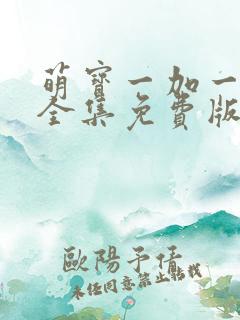 萌寶一加一
全集免費版
歐陽予倩
未經同意禁止轉載